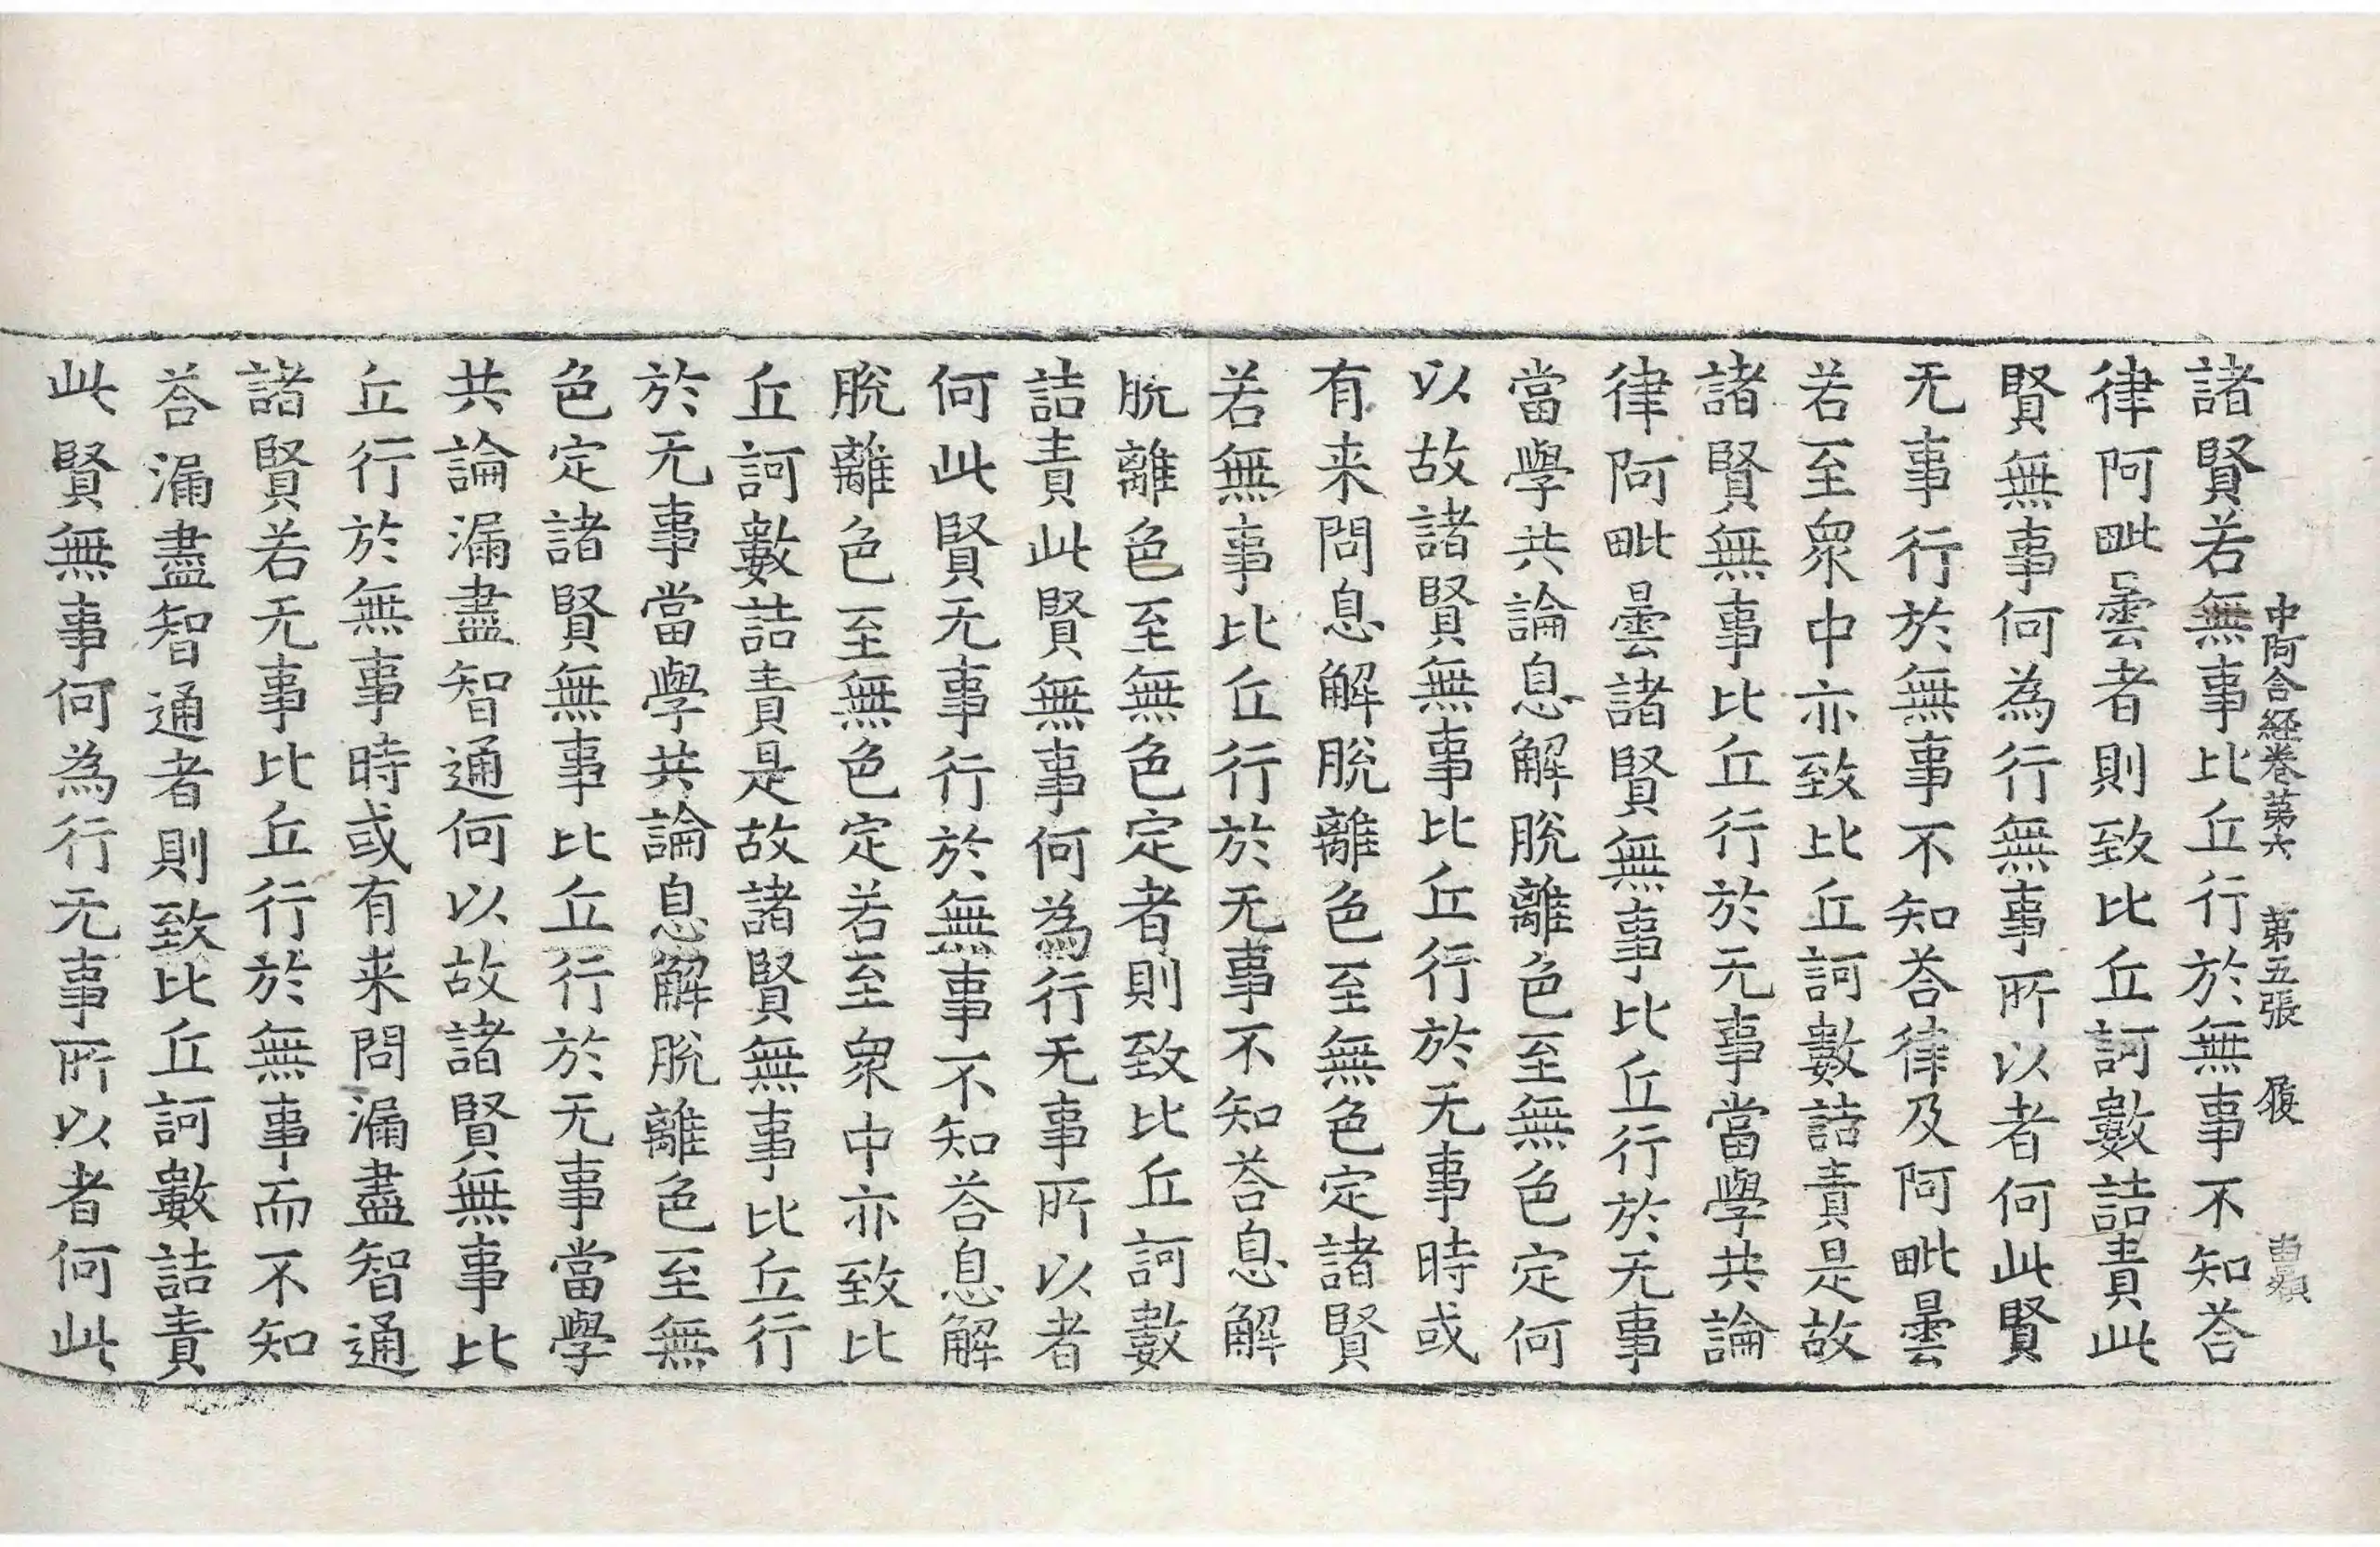 中阿含経卷第六 第五張 履
諸賢若無事比丘行於無事不知荅
律阿毗曇者則致比丘訶數詰責此
賢無事何為行無事所以者何此賢
无事行於無事不知荅律及阿毗曇
若至衆中亦致比丘訶數詰責是故
諸賢無事比丘行於无事當學共論
律阿毗曇諸賢無事比丘行於无事
當學共論息解脫離色至無色定何
以故諸賢無事比丘行於无事時或
有来問息解脫離色至無色定諸賢
若無事比丘行於无事不知荅息解
脫離色至無色定者則致比丘訶數
詰責此賢無事何為行无事所以者
何此賢无事行於無事不知荅息解
脫離色至無色定若至衆中亦致比
丘訶數詰責是故諸賢無事比丘行
於无事當學共論息解脫離色至無
色定諸賢無事比丘行於无事當學
共論漏盡智通何以故諸賢無事比
丘行於無事時或有来問漏盡智通
諸賢若无事比丘行於無事而不知
荅漏盡智通者則致比丘訶數詰責
此賢無事何為行无事所以者何此